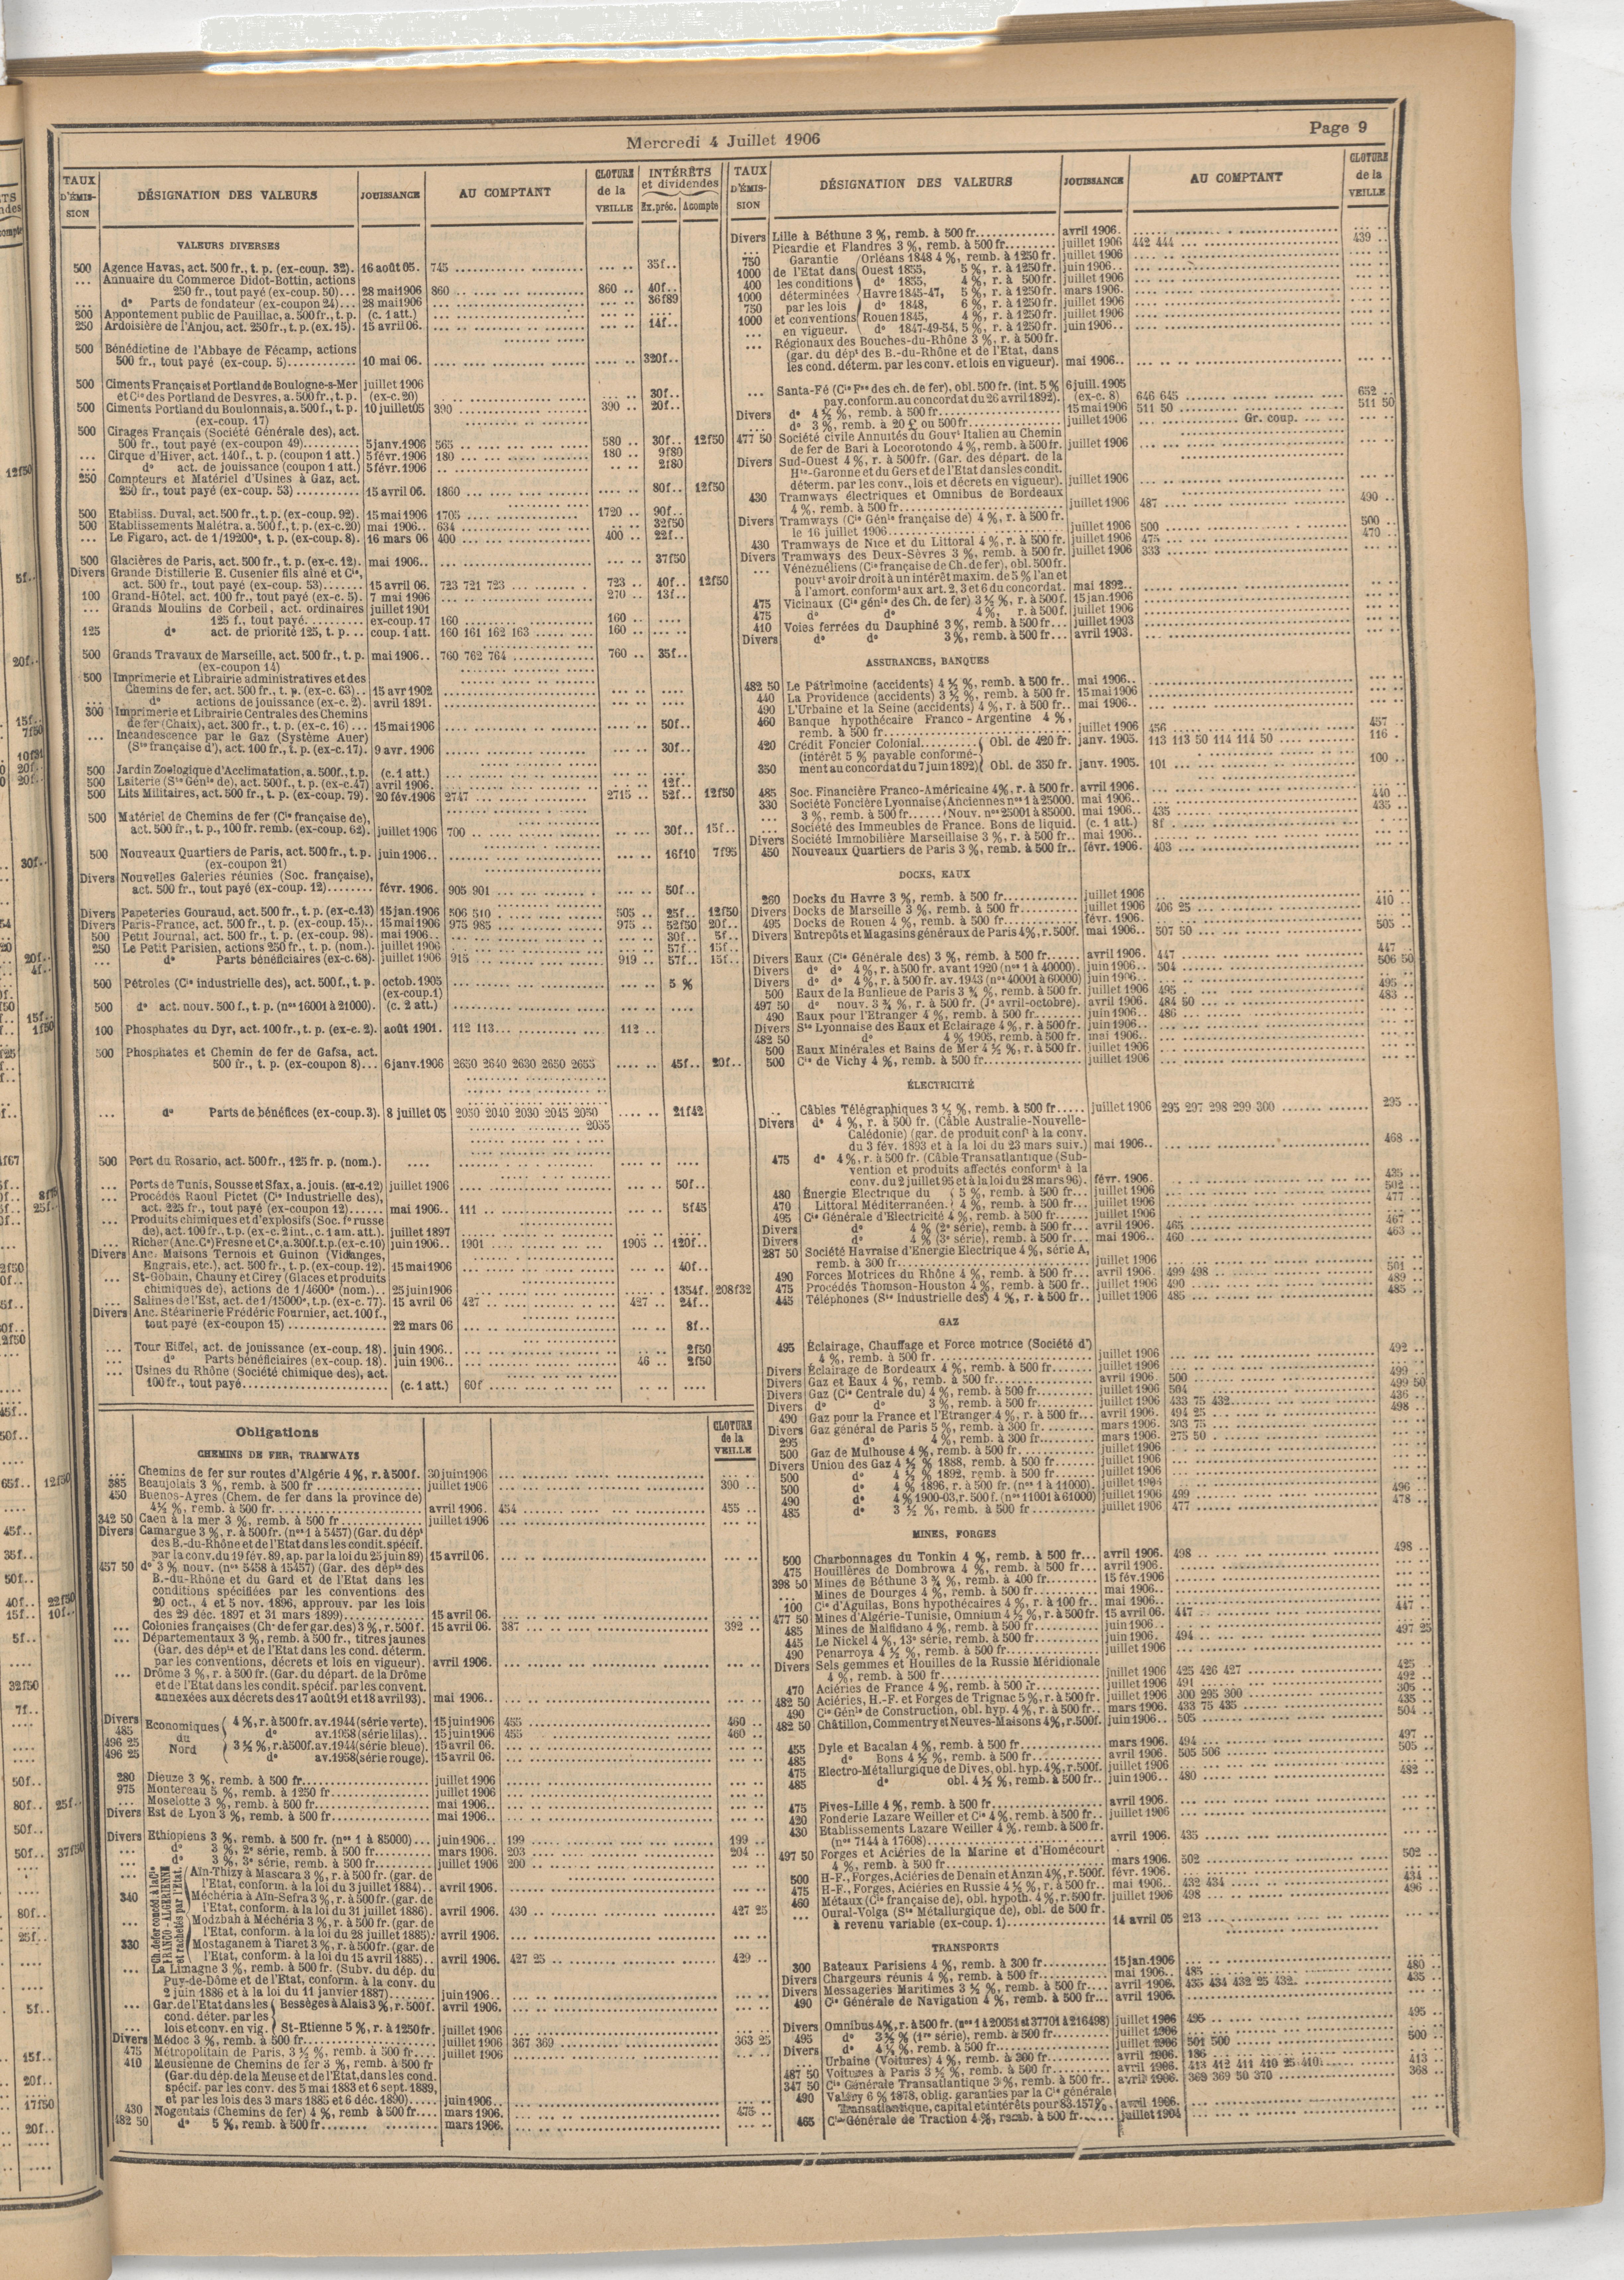 Mercredi 4 Juillet 1906
Page 9
TAUX D'ÉMISSION
DÉSIGNATION DES VALEURS
JOUISSANCE
AU COMPTANT
CLOTURE de la VEILLE
INTÉRÊTS et dividendes
Ex.préc. Acompte
VALEURS DIVERSES
500 Agence Havas, act. 500 fr., t. p. (ex-coup. 32). 16 août 05. 745 35f..
... Annuaire du Commerce Didot-Bottin, actions
250 fr., tout payé (ex-coup. 50)... 28 mai 1906 860 860 .. 40f..
... do Parts de fondateur (ex-coupon 24)... 28 mai 1906 36f89
500 Appontement public de Pauillac, a. 500 fr., t. p. (c. 1 att.)
250 Ardoisière de l'Anjou, act. 250 fr., t. p. (ex. 15). 15 avril 06. 14f..
500 Bénédictine de l'Abbaye de Fécamp, actions
500 fr., tout payé (ex-coup. 5) 10 mai 06. 320f..
500 Ciments Français et Portland de Boulogne-s-Mer juillet 1906
et Cie des Portland de Desvres, a. 500 fr., t. p. (ex-c. 20) 30f..
500 Ciments Portland du Boulonnais, a. 500 fr., t. p. 10 juillet 05 390 390 .. 20f..
(ex-coup. 17)
500 Cirages Français (Société Générale des), act.
500 fr., tout payé (ex-coupon 49) 5 janv. 1906 565 580 .. 30f.. 12f50
... Cirque d'Hiver, act. 140 f., t. p. (coupon 1 att.) 5 févr. 1906 180 180 .. 9f80
... do act. de jouissance (coupon 1 att.) 5 févr. 1906 2f80
250 Compteurs et Matériel d'Usines à Gaz, act.
250 fr., tout payé (ex-coup. 53) 15 avril 06. 1860 80f.. 12f50
500 Etabliss. Duval, act. 500 fr., t. p. (ex-coup. 92). 15 mai 1906 1705 1720 .. 90f..
500 Etablissements Malétra. a. 500 f., t. p. (ex-c. 20) mai 1906.. 634 32f50
... Le Figaro, act. de 1/19200e, t. p. (ex-coup. 8). 16 mars 06 400 400 .. 22f..
500 Glacières de Paris, act. 500 fr., t. p. (ex-c. 12). mai 1906.. 37f50
Divers Grande Distillerie E. Cusenier fils aîné et Cie,
act. 500 fr., tout payé (ex-coup. 53) 15 avril 06. 723 721 723 723 .. 40f.. 12f50
100 Grand-Hôtel. act. 100 fr., tout payé (ex-c. 5). 7 mai 1906 270 .. 13f..
... Grands Moulins de Corbeil, act. ordinaires juillet 1901
125 f., tout payé ex-coup. 17 160 160 ..
125 do act. de priorité 125, t. p... coup. 1 att. 160 161 162 163 160 ..
500 Grands Travaux de Marseille, act. 500 fr., t. p. mai 1906.. 760 762 764 760 .. 35f..
(ex-coupon 14)
500 Imprimerie et Librairie administratives et des
Chemins de fer, act. 500 fr., t. p. (ex-c. 63).. 15 avr 1902
... do actions de jouissance (ex-c. 2). avril 1891.
300 Imprimerie et Librairie Centrales des Chemins
de fer (Chaix), act. 300 fr., t. p. (ex-c. 16)... 15 mai 1906 50f..
... Incandescence par le Gaz (Système Auer)
(Sté française d'), act. 100 fr., t. p. (ex-c. 17). 9 avr. 1906 30f..
500 Jardin Zoologique d'Acclimatation, a. 500 f., t. p. (c. 1 att.)
500 Laiterie (Sté Génle de), act. 500 f., t. p. (ex-c. 47) avril 1906. 12f..
500 Lits Militaires, act. 500 fr., t. p. (ex-coup. 79). 20 fév. 1906 2747 2715 .. 52f.. 12f50
500 Matériel de Chemins de fer (Cie française de),
act. 500 fr., t. p., 100 fr. remb. (ex-coup. 62). juillet 1906 700 30f.. 15f..
500 Nouveaux Quartiers de Paris, act. 500 fr., t. p. juin 1906.. 16f10 7f95
(ex-coupon 21)
Divers Nouvelles Galeries réunies (Soc. française),
act. 500 fr., tout payé (ex-coup. 12) févr. 1906. 905 901 50f..
Divers Papeteries Gouraud, act. 500 fr., t. p. (ex-c. 13) 15 jan. 1906 506 510 505 .. 25f.. 12f50
Divers Paris-France, act. 500 fr., t. p. (ex-coup. 15).. 15 mai 1906 975 985 975 .. 52f50 20f..
500 Petit Journal, act. 500 fr., t. p. (ex-coup. 98). mai 1906.. 30f.. 5f..
250 Le Petit Parisien, actions 250 fr., t. p. (nom.). juillet 1906 57f.. 15f..
... do Parts bénéficiaires (ex-c. 68). juillet 1906 915 919 .. 57f.. 15f..
500 Pétroles (Cie industrielle des), act. 500 f., t. p. octob. 1905 5 %
(ex-coup. 1)
500 do act. nouv. 500 f., t. p. (nos 16001 à 21000). (c. 2 att.)
100 Phosphates du Dyr, act. 100 fr., t. p. (ex-c. 2). août 1901. 112 113 112 ..
500 Phosphates et Chemin de fer de Gafsa, act.
500 fr., t. p. (ex-coupon 8)... 6 janv. 1906 2650 2640 2630 2650 2655 45f.. 20f..
... do Parts de bénéfices (ex-coup. 3). 8 juillet 05 2050 2040 2030 2045 2050 21f42
2055
500 Port du Rosario, act. 500 fr., 125 fr. p. (nom.).
... Ports de Tunis, Sousse et Sfax, a. jouis. (ex-c. 12) juillet 1906 50f..
... Procédés Raoul Pictet (Cie Industrielle des),
act. 225 fr., tout payé (ex-coupon 12) mai 1906.. 111 5f45
... Produits chimiques et d'explosifs (Soc. fse russe
de), act. 100 fr., t. p. (ex-c. 2 int., c. 1 am. att.). juillet 1897
... Richer (Anc. Ce) Fresne et Ce, a. 300 f. t. p. (ex-c. 10) juin 1906.. 1901 1905 .. 120f..
Divers Anc. Maisons Ternois et Guinon (Vidanges,
Engrais, etc.), act. 500 fr., t. p. (ex-coup. 12). 15 mai 1906 40f..
... St-Gobain, Chauny et Cirey (Glaces et produits
chimiques de), actions de 1/4600e (nom.).. 25 juin 1906 1354f. 208f32
... Salines de l'Est, act. de 1/15000e, t. p. (ex-c. 77). 15 avril 06 427 427 .. 24f..
Divers Anc. Stéarinerie Frédéric Fournier, act. 100 f.,
tout payé (ex-coupon 15) 22 mars 06 8f..
... Tour Eiffel, act. de jouissance (ex-coup. 18). juin 1906.. 2f50
... do Parts bénéficiaires (ex-coup. 18). juin 1906.. 46 .. 2f50
... Usines du Rhône (Société chimique des), act.
100 fr., tout payé (c. 1 att.) 60f
Obligations
CLOTURE de la VEILLE
CHEMINS DE FER, TRAMWAYS
... Chemins de fer sur routes d'Algérie 4 %, r. à 500 f. 30 juin 1906
385 Beaujolais 3 %, remb. à 500 fr juillet 1906 390 ..
450 Buenos-Ayres (Chem. de fer dans la province de)
4½ %, remb. à 500 fr. avril 1906. 454 455 ..
342 50 Caen à la mer 3 %, remb. à 500 fr juillet 1906
Divers Camargue 3 %, r. à 500 fr. (nos 1 à 5457) (Gar. du dépt
des B.-du-Rhône et de l'Etat dans les condit. spécif.
par la conv. du 19 fév. 89, ap. par la loi du 25 juin 89) 15 avril 06.
457 50 do 3 % nouv. (nos 5458 à 15457) (Gar. des dépts des
B.-du-Rhône et du Gard et de l'Etat dans les
conditions spécifiées par les conventions des
20 oct., 4 et 5 nov. 1896, approuv. par les lois
des 29 déc. 1897 et 31 mars 1899) 15 avril 06.
... Colonies françaises (Ch. de fer gar. des) 3 %, r. 500 f. 15 avril 06. 387 392 ..
... Départementaux 3 %, remb. à 500 fr., titres jaunes
(Gar. des dépts et de l'Etat dans les cond. déterm.
par les conventions, décrets et lois en vigueur). avril 1906.
... Drôme 3 %, r. à 500 fr. (Gar. du départ. de la Drôme
et de l'Etat dans les condit. spécif. par les convent.
annexées aux décrets des 17 août 91 et 18 avril 93). mai 1906..
Economiques du Nord
Divers 4 %, r. à 500 fr. av. 1944 (série verte). 15 juin 1906 455 460 ..
485 do av. 1958 (série lilas).. 15 juin 1906 455 460 ..
496 25 3½ %, r. à 500 f. av. 1944 (série bleue). 15 avril 06.
496 25 do av. 1958 (série rouge). 15 avril 06.
280 Dieuze 3 %, remb. à 500 fr juillet 1906
975 Montereau 5 %, remb. à 1250 fr juillet 1906
... Moselotte 3 %, remb. à 500 fr mai 1906..
Divers Est de Lyon 3 %, remb. à 500 fr mai 1906..
Divers Ethiopiens 3 %, remb. à 500 fr. (nos 1 à 85000)... juin 1906.. 199 199 ..
... do 3 %, 2e série, remb. à 500 fr mars 1906. 203 204 ..
... do 3 %, 3e série, remb. à 500 fr juillet 1906 200
Ch. de fer concédé à la Cie FRANCO-ALGÉRIENNE et rachetés par l'Etat.
... Aïn-Thizy à Mascara 3 %, r. à 500 fr. (gar. de
l'Etat, conform. à la loi du 3 juillet 1884).. avril 1906.
340 Méchéria à Aïn-Sefra 3 %, r. à 500 fr. (gar. de
l'Etat, conform. à la loi du 31 juillet 1886). avril 1906. 430 427 25
... Modzbah à Méchéria 3 %, r. à 500 fr. (gar. de
l'Etat, conform. à la loi du 28 juillet 1885). avril 1906.
330 Mostaganem à Tiaret 3 %, r. à 500 fr. (gar. de
l'Etat, conform. à la loi du 15 avril 1885).. avril 1906. 427 25 429 ..
... La Limagne 3 %, remb. à 500 fr. (Subv. du dép. du
Puy-de-Dôme et de l'Etat, conform. à la conv. du
2 juin 1886 et à la loi du 11 janvier 1887) juin 1906..
... Gar. de l'Etat dans les cond. déter. par les lois et conv. en vig. Bessèges à Alais 3 %, r. 500 f. avril 1906.
... St-Etienne 5 %, r. à 1250 fr. juillet 1906
Divers Médoc 3 %, remb. à 500 fr juillet 1906 367 369 363 25
475 Métropolitain de Paris, 3½ %, remb. à 500 fr juillet 1906
410 Meusienne de Chemins de fer 3 %, remb. à 500 fr
(Gar. du dép. de la Meuse et de l'Etat, dans les cond.
spécif. par les conv. des 5 mai 1883 et 6 sept. 1889,
et par les lois des 3 mars 1885 et 6 déc. 1890) juin 1906..
430 Nogentais (Chemins de fer) 4 %, remb à 500 fr mars 1906. 475 ..
482 50 do 5 %, remb. à 500 fr mars 1906.
TAUX D'ÉMISSION
DÉSIGNATION DES VALEURS
JOUISSANCE
AU COMPTANT
CLOTURE de la VEILLE
Divers Lille à Béthune 3 %, remb. à 500 fr avril 1906.
... Picardie et Flandres 3 %, remb. à 500 fr juillet 1906 442 444 439 ..
Garantie de l'Etat dans les conditions déterminées par les lois et conventions en vigueur.
750 Orléans 1848 4 %, remb. à 1250 fr. juillet 1906
1000 Ouest 1855, 5 %, r. à 1250 fr. juin 1906..
400 do 1855, 4 %, r. à 500 fr. juillet 1906
1000 Havre 1845-47, 5 %, r. à 1250 fr. mars 1906.
750 do 1848, 6 %, r. à 1250 fr. juillet 1906
1000 Rouen 1845, 4 %, r. à 1250 fr. juillet 1906
... do 1847-49-54, 5 %, r. à 1250 fr. juin 1906..
... Régionaux des Bouches-du-Rhône 3 %, r. à 500 fr.
(gar. du dépt des B.-du-Rhône et de l'Etat, dans
les cond. déterm. par les conv. et lois en vigueur). mai 1906..
... Santa-Fé (Cie Fse des ch. de fer), obl. 500 fr. (int. 5 % 6 juill. 1905
pay. conform. au concordat du 26 avril 1892). (ex-c. 8) 646 645 652 ..
Divers do 4½ %, remb. à 500 fr 15 mai 1906 511 50 511 50
do 3 %, remb. à 20 £ ou 500 fr juillet 1906 Gr. coup.
477 50 Société civile Annuités du Gouvt Italien au Chemin
de fer de Bari à Locorotondo 4 %, remb. à 500 fr. juillet 1906
Divers Sud-Ouest 4 %, r. à 500 fr. (Gar. des départ. de la
Hte-Garonne et du Gers et de l'Etat dans les condit.
déterm. par les conv., lois et décrets en vigueur). juillet 1906
430 Tramways électriques et Omnibus de Bordeaux
4 %, remb. à 500 fr juillet 1906 487 490 ..
Divers Tramways (Cie Génle française de) 4 %, r. à 500 fr.
le 16 juillet 1906 juillet 1906 500 500 ..
430 Tramways de Nice et du Littoral 4 %, r. à 500 fr. juillet 1906 475 470 ..
Divers Tramways des Deux-Sèvres 3 %, remb. à 500 fr. juillet 1906 333
... Vénézuéliens (Cie française de Ch. de fer), obl. 500 fr.
pouvt avoir droit à un intérêt maxim. de 5 % l'an et
à l'amort. conformt aux art. 2, 3 et 6 du concordat. mai 1892..
475 Vicinaux (Cie génle des Ch. de fer) 3½ %, r. à 500 f. 15 jan. 1906
475 do do 4 %, r. à 500 f. juillet 1906
410 Voies ferrées du Dauphiné 3 %, remb. à 500 fr... juillet 1903
Divers do do 3 %, remb. à 500 fr... avril 1903.
ASSURANCES, BANQUES
482 50 Le Patrimoine (accidents) 4½ %, remb. à 500 fr.. mai 1906..
440 La Providence (accidents) 3½ %, remb. à 500 fr. 15 mai 1906
490 L'Urbaine et la Seine (accidents) 4 %, r. à 500 fr. mai 1906..
460 Banque hypothécaire Franco-Argentine 4 %,
remb. à 500 fr juillet 1906 456 457 ..
420 Crédit Foncier Colonial Obl. de 420 fr. janv. 1905. 113 113 50 114 114 50 116 ..
(intérêt 5 % payable conformé-
350 ment au concordat du 7 juin 1892) Obl. de 350 fr. janv. 1905. 101 100 ..
485 Soc. Financière Franco-Américaine 4 %, r. à 500 fr. avril 1906.
330 Société Foncière Lyonnaise Anciennes nos 1 à 25000. mai 1906.. 440 ..
... 3 %, remb. à 500 fr Nouv. nos 25001 à 85000. mai 1906.. 435 435 ..
... Société des Immeubles de France. Bons de liquid. (c. 1 att.) 8f
Divers Société Immobilière Marseillaise 3 %, r. à 500 fr.. mai 1906..
450 Nouveaux Quartiers de Paris 3 %, remb. à 500 fr.. févr. 1906. 403
DOCKS, EAUX
260 Docks du Havre 3 %, remb. à 500 fr juillet 1906
Divers Docks de Marseille 3 %, remb. à 500 fr juillet 1906 406 25 410 ..
495 Docks de Rouen 4 %, remb. à 500 fr févr. 1906.
Divers Entrepôts et Magasins généraux de Paris 4 %, r. 500 f. mai 1906.. 507 50 505 ..
Divers Eaux (Cie Générale des) 3 %, remb. à 500 fr avril 1906. 447 447 ..
Divers do do 4 %, r. à 500 fr. avant 1920 (nos 1 à 40000). juin 1906.. 504 506 50
Divers do do 4 %, r. à 500 fr. av. 1943 (nos 40001 à 60000) juin 1906..
500 Eaux de la Banlieue de Paris 3¾ %, remb. à 500 fr. juillet 1906 495 495 ..
497 50 do nouv. 3¾ %, r. à 500 fr. (Jce avril-octobre). avril 1906. 484 50 483 ..
490 Eaux pour l'Etranger 4 %, remb. à 500 fr juin 1906.. 486
Divers Sté Lyonnaise des Eaux et Eclairage 4 %, r. à 500 fr. juin 1906..
482 50 do 4 % 1905, remb. à 500 fr. mai 1906..
500 Eaux Minérales et Bains de Mer 4½ %, r. à 500 fr. juillet 1906
500 Cie de Vichy 4 %, remb. à 500 fr juillet 1906
ÉLECTRICITÉ
... Câbles Télégraphiques 3½ %, remb. à 500 fr juillet 1906 295 297 298 299 300 295 ..
Divers do 4 %, r. à 500 fr. (Câble Australie-Nouvelle-
Calédonie) (gar. de produit conft à la conv.
du 3 fév. 1893 et à la loi du 23 mars suiv.) mai 1906.. 468 ..
475 do 4 %, r. à 500 fr. (Câble Transatlantique (Sub-
vention et produits affectés conformt à la
conv. du 2 juillet 95 et à la loi du 28 mars 96). févr. 1906. 435 ..
480 Énergie Electrique du 5 %, remb. à 500 fr... juillet 1906 502 ..
470 Littoral Méditerranéen. 4 %, remb. à 500 fr... juillet 1906 477 ..
495 Cie Générale d'Electricité 4 %, remb. à 500 fr juillet 1906
Divers do 4 % (2e série), remb. à 500 fr avril 1906. 465 467 ..
Divers do 4 % (3e série), remb. à 500 fr mai 1906.. 460 463 ..
287 50 Société Havraise d'Energie Electrique 4 %, série A,
remb. à 300 fr juillet 1906
490 Forces Motrices du Rhône 4 %, remb. à 500 fr avril 1906. 499 498 501 ..
475 Procédés Thomson-Houston 4 %, remb. à 500 fr.. juillet 1906 490 489 ..
445 Téléphones (Sté Industrielle des) 4 %, r. à 500 fr.. juillet 1906 485 485 ..
GAZ
495 Éclairage, Chauffage et Force motrice (Société d')
4 %, remb. à 500 fr juillet 1906 492 ..
Divers Éclairage de Bordeaux 4 %, remb. à 500 fr juillet 1906
Divers Gaz et Eaux 4 %, remb. à 500 fr avril 1906. 500 499 ..
Divers Gaz (Cie Centrale du) 4 %, remb. à 500 fr juillet 1906 504 499 50
Divers do do 3 %, remb. à 500 fr juillet 1906 433 75 432 436 ..
490 Gaz pour la France et l'Etranger 4 %, r. à 500 fr... avril 1906. 494 25 498 ..
Divers Gaz général de Paris 5 %, remb. à 300 fr mars 1906. 303 75
295 do 4 %, remb. à 300 fr mars 1906. 275 50
500 Gaz de Mulhouse 4 %, remb. à 500 fr juillet 1906
Divers Union des Gaz 4½ % 1888, remb. à 500 fr juillet 1906
500 do 4½ % 1892, remb. à 500 fr juillet 1906
500 do 4 % 1896, r. à 500 fr. (nos 1 à 11000). juillet 1904
490 do 4 % 1900-03, r. 500 f. (nos 11001 à 61000) juillet 1906 499 496 ..
485 do 3½ %, remb. à 500 fr juillet 1906 477 478 ..
MINES, FORGES
500 Charbonnages du Tonkin 4 %, remb. à 500 fr... avril 1906. 498 498 ..
475 Houillères de Dombrowa 4 %, remb. à 500 fr... avril 1906.
398 50 Mines de Béthune 3¾ %, remb. à 400 fr 15 fév. 1906
... Mines de Dourges 4 %, remb. à 500 fr mai 1906..
100 Cie d'Aguilas, Bons hypothécaires 4 %, r. à 100 fr.. mai 1906..
477 50 Mines d'Algérie-Tunisie, Omnium 4½ %, r. à 500 fr. 15 avril 06. 447 447 ..
485 Mines de Malfidano 4 %, remb. à 500 fr juin 1906..
445 Le Nickel 4 %, 13e série, remb. à 500 fr juin 1906.. 494 497 25
490 Penarroya 4½ %, remb. à 500 fr juillet 1906
Divers Sels gemmes et Houilles de la Russie Méridionale
4 %, remb. à 500 fr juillet 1906 425 426 427 425 ..
470 Aciéries de France 4 %, remb. à 500 fr juillet 1906 491 492 ..
482 50 Aciéries, H.-F. et Forges de Trignac 5 %, r. à 500 fr. juillet 1906 300 295 300 305 ..
490 Cie Génle de Construction, obl. hyp. 4 %, r. à 500 fr. mars 1906. 433 75 435 435 ..
482 50 Châtillon, Commentry et Neuves-Maisons 4 %, r. 500 f. juin 1906.. 505 504 ..
455 Dyle et Bacalan 4 %, remb. à 500 fr mars 1906. 494 497 ..
485 do Bons 4½ %, remb. à 500 fr avril 1906. 505 506 505 ..
475 Electro-Métallurgique de Dives, obl. hyp. 4 %, r. 500 f. juillet 1906
485 do obl. 4½ %, remb. à 500 fr.. juin 1906.. 480 482 ..
475 Fives-Lille 4 %, remb. à 500 fr avril 1906.
420 Fonderie Lazare Weiller et Cie 4 %, remb. à 500 fr.. juillet 1906
430 Etablissements Lazare Weiller 4 %. remb. à 500 fr.
(nos 7144 à 17608) avril 1906. 435
497 50 Forges et Aciéries de la Marine et d'Homécourt
4 %, remb. à 500 fr mars 1906. 502 502 ..
500 H-F., Forges, Aciéries de Denain et Anzin 4 %, r. 500 f. févr. 1906.
475 H-F., Forges, Aciéries en Russie 4½ %, r. à 500 fr.. mai 1906.. 432 434 434 ..
460 Métaux (Cie française de), obl. hypoth. 4 %, r. 500 fr. juillet 1906 498 496 ..
... Oural-Volga (Sté Métallurgique de), obl. de 500 fr.
à revenu variable (ex-coup. 1) 14 avril 05 213
TRANSPORTS
300 Bateaux Parisiens 4 %, remb. à 300 fr 15 jan. 1906
Divers Chargeurs réunis 4 %, remb. à 500 fr mai 1906.. 485 480 ..
Divers Messageries Maritimes 3½ %, remb. à 500 fr avril 1906. 435 434 432 25 432 435 ..
490 Cie Générale de Navigation 4 %, remb. à 500 fr.. avril 1906.
Divers Omnibus 4 %, r. à 500 fr. (nos 1 à 20051 et 37701 à 216498) juillet 1906 495 495 ..
495 do 3½ % (1re série), remb. à 500 fr juillet 1906
Divers do 4½ %, remb. à 500 fr juillet 1906 501 500 500 ..
... Urbaine (Voitures) 4 %, remb. à 300 fr avril 1906. 186
487 50 Voitures à Paris 3½ %, remb. à 500 fr avril 1906. 413 412 411 410 25 410 413 ..
347 50 Cie Générale Transatlantique 3 %, remb. à 500 fr. avril 1906. 369 369 50 370 368 ..
490 Valéry 6 % 1878, oblig. garanties par la Cie générale
Transatlantique, capital et intérêts pour 83.157 %. avril 1906.
465 Cie Générale de Traction 4 %, remb. à 500 fr juillet 1904